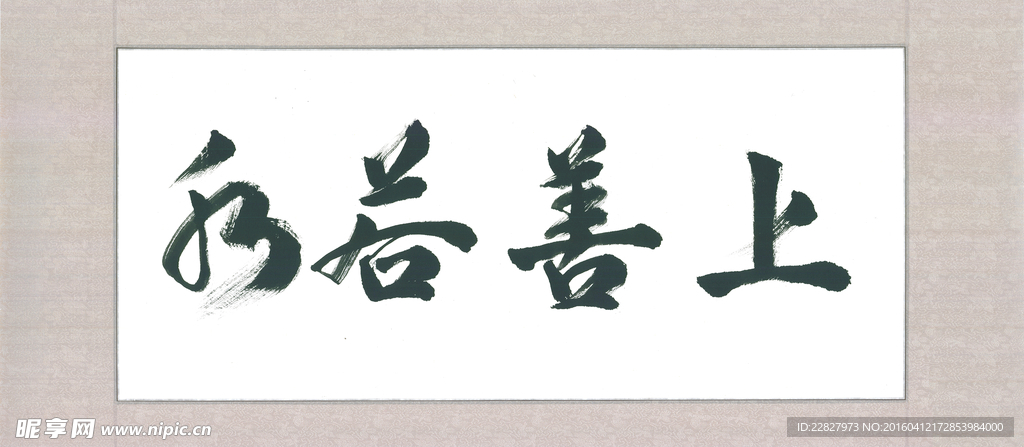 上善若水
昵享网 www.nipic.cn
ID:22827973 NO:20160412172853984000